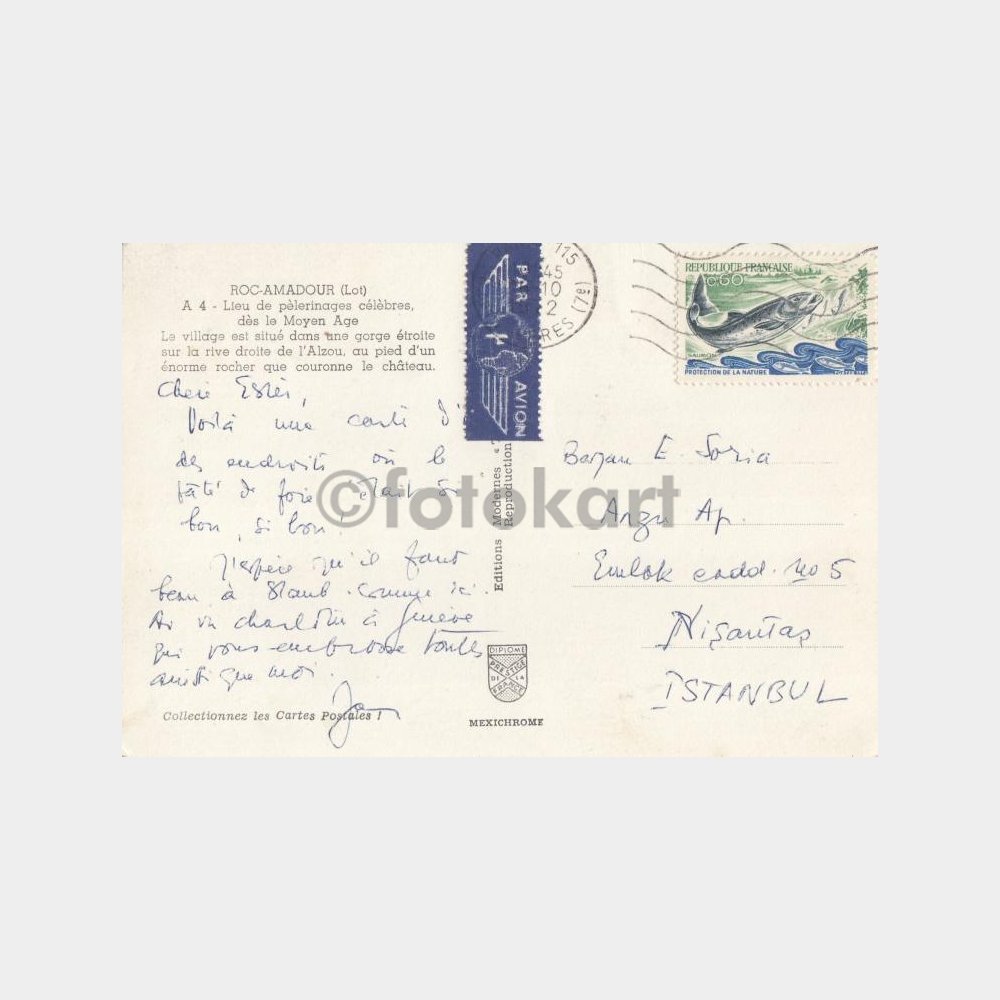 ROC-AMADOUR (Lot)
A 4 - Lieu de pèlerinages célèbres,
dès le Moyen Age
Le village est situé dans une gorge étroite
sur la rive droite de l'Alzou, au pied d'un
énorme rocher que couronne le château.
Voilà une carte
des endroits où le
pâté de foie était
bon, si bon!
J'espère qu'il
beau à comme ici.
à Genève
qui vous embrasse toutes
ainsi que moi.
Collectionnez les Cartes Postales !
PAR AVION
Editions Modernes
Reproduction
DIPLOME
PRESTIGE
DE LA
FRANCE
MEXICHROME
115
45
10
2
RES (17è)
REPUBLIQUE FRANÇAISE
0,60
SAUMON
PROTECTION DE LA NATURE
Bayan E. Soria
Arzu Ap.
Emlak cadd. no 5
Nişantaş
ISTANBUL
©fotokart